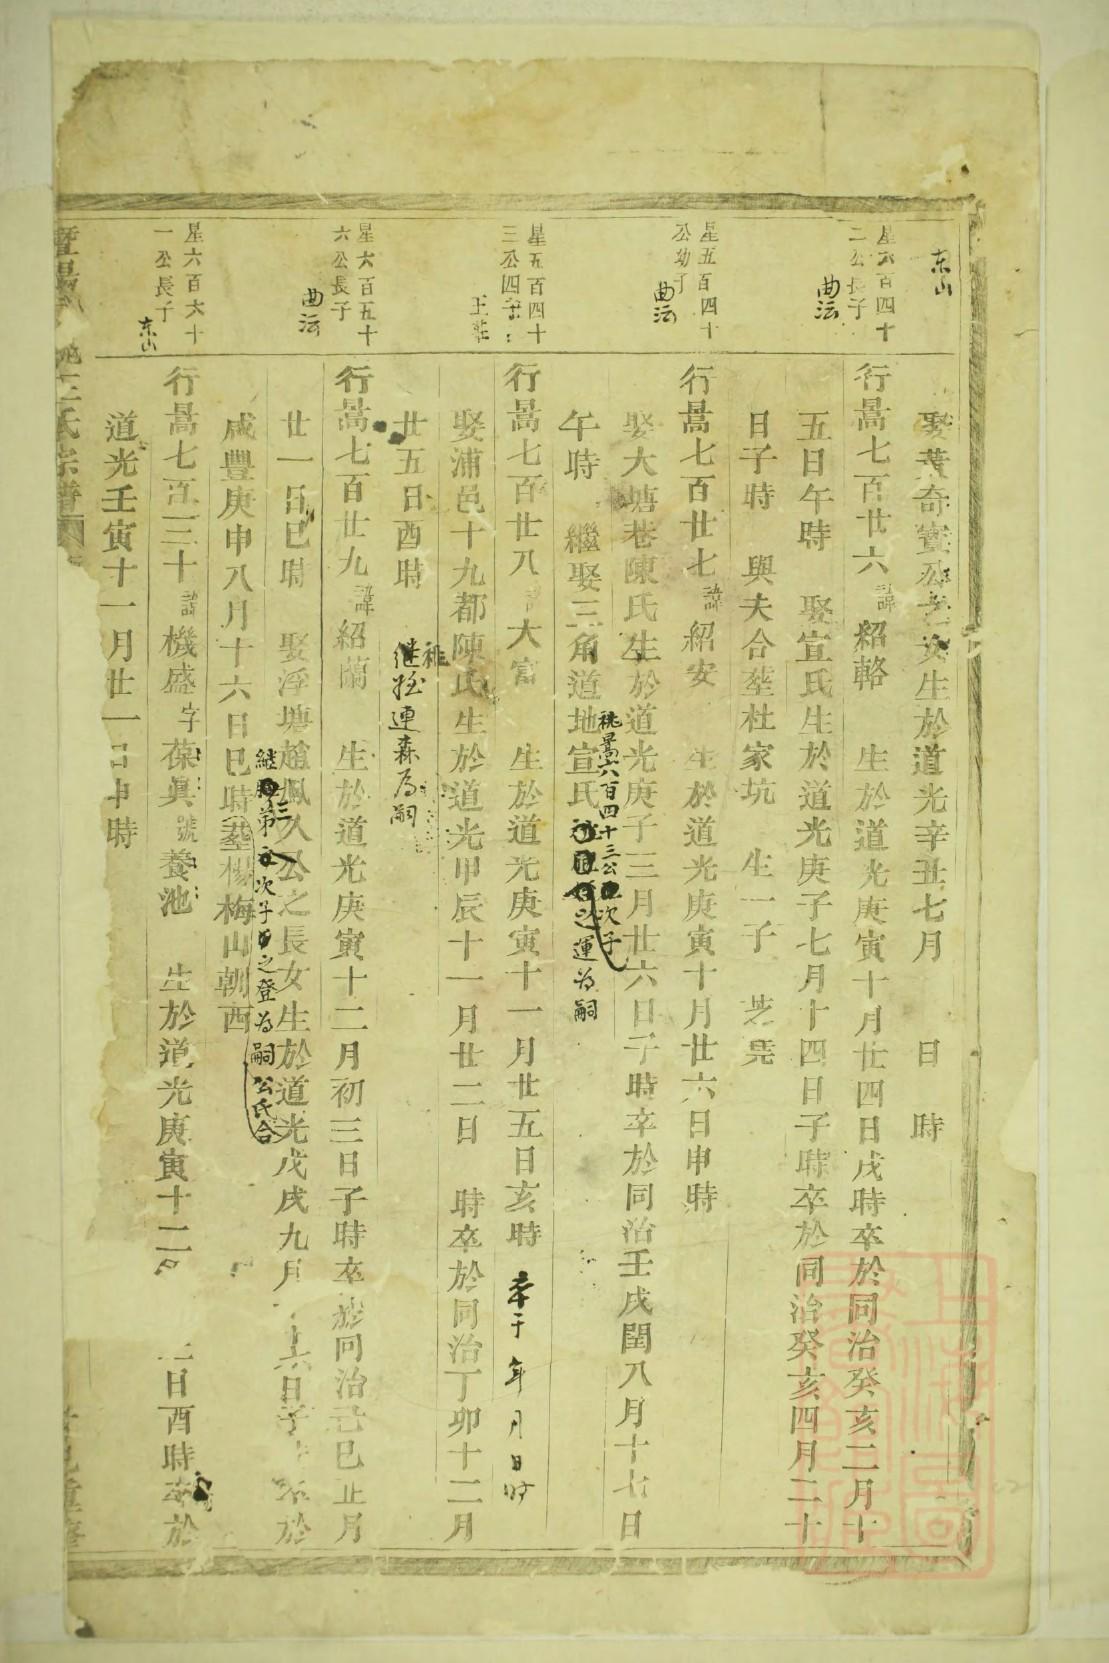 东山
娶黃奇寶公之次女生於道光辛丑七月 日 時
星六百四十二公長子
曲沄
行暠七百廿六諱紹輅 生於道光庚寅十月廿四日戌時卒於同治癸亥二月十
五日午時 娶宣氏生於道光庚子七月十四日子時卒於同治癸亥四月二十
日子時 與夫合塟杜家坑 生一子 芝堯
星五百四十公幼子
曲沄
行暠七百廿七諱紹安 生於道光庚寅十月廿六日申時
娶大塘巷陳氏生於道光庚子三月廿六日子時卒於同治壬戌閏八月十七日
午時 繼娶三角道地宣氏
祧暠六百四十三公次子
之運為嗣
星五百四十三公四子
王莊
行暠七百廿八 大富 生於道光庚寅十一月廿五日亥時 卒于 年 月 日 时
娶浦邑十九都陳氏生於道光甲辰十一月廿二日 時卒於同治丁卯十二月
廿五日酉時
祧
继姪連森為嗣
星六百五十六公長子
曲沄
行暠七百廿九諱紹蘭 生於道光庚寅十二月初三日子時卒於同治己巳正月
廿一日巳時 娶浮塘趙 久公之長女生於道光戊戌九月 十六日子 卒於
咸豐庚申八月十六日巳時塟楊梅山朝西
继 弟 次子 之登為嗣
公氏合
星六百六十一公長子
东山
行暠七百三十諱機盛字葆眞號養池 生於道光庚寅十二 日酉時卒於
道光壬寅十一月廿一日申時
暨陽 王氏宗譜